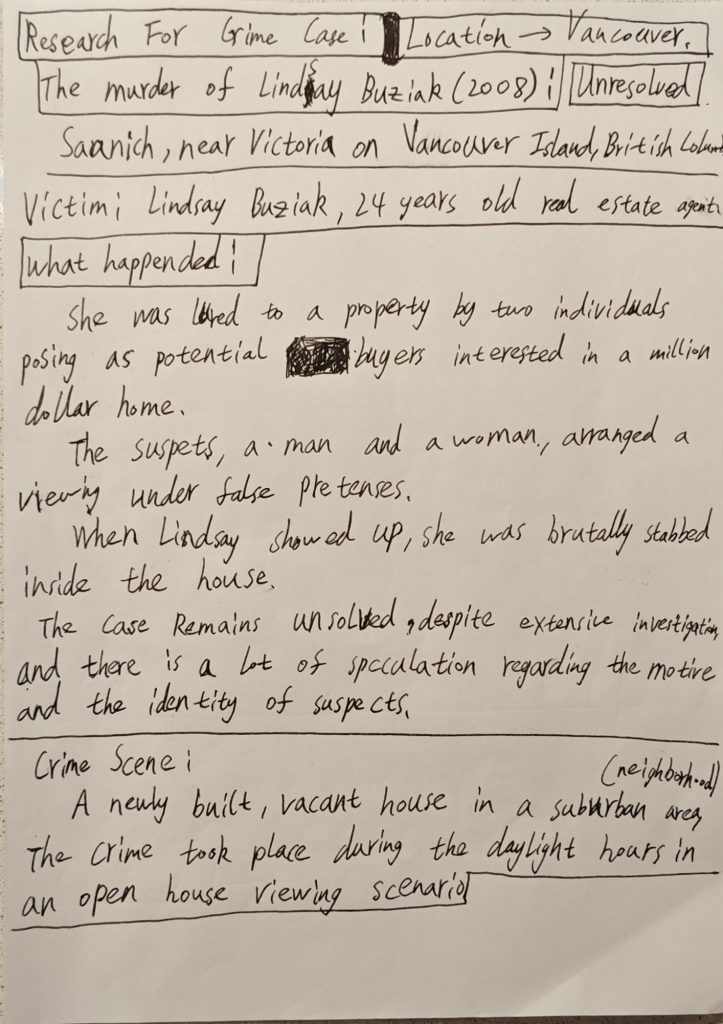 Research For Crime Case : Location → Vancouver.
The murder of Lindsay Buziak (2008) : Unresolved
Saanich, near Victoria on Vancouver Island, British Colum
Victim : Lindsay Buziak, 24 years old real estate agent.
What happended :
She was lured to a property by two individuals
posing as potential buyers interested in a million
dollar home.
The suspets, a man and a woman, arranged a
viewing under false pretenses.
When Lindsay showed up, she was brutally stabbed
inside the house.
The case Remains unsolved, despite extensive investigation,
and there is a lot of speculation regarding the motive
and the identity of suspects.
Crime Scene : (neighborhood)
A newly built, vacant house in a suburban area,
The crime took place during the daylight hours in
an open house viewing scenario